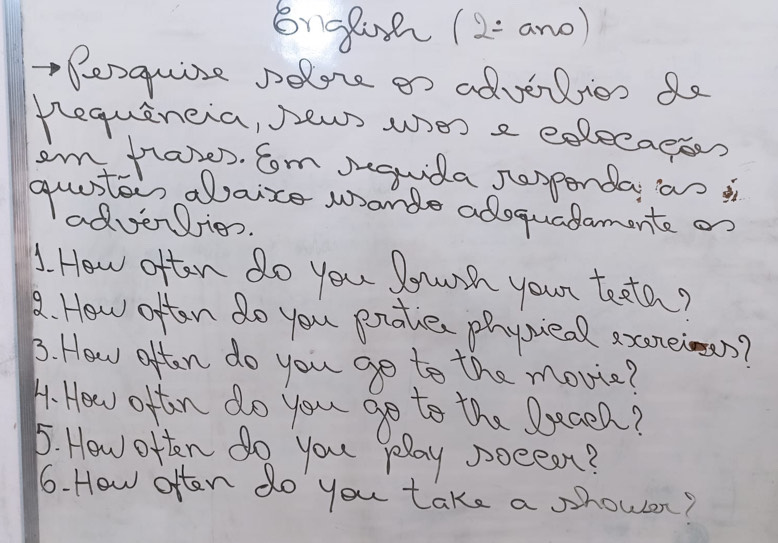 English (2º ano)
→ Pesquise sobre os advérbios de
frequência, seus usos e colocações
em frases. Em seguida responda as
questões abaixo usando adequadamente os
advérbios.
1. How often do you brush your teeth?
2. How often do you pratice physical exercises?
3. How often do you go to the movie?
4. How often do you go to the beach?
5. How often do you play soccer?
6. How often do you take a shower?